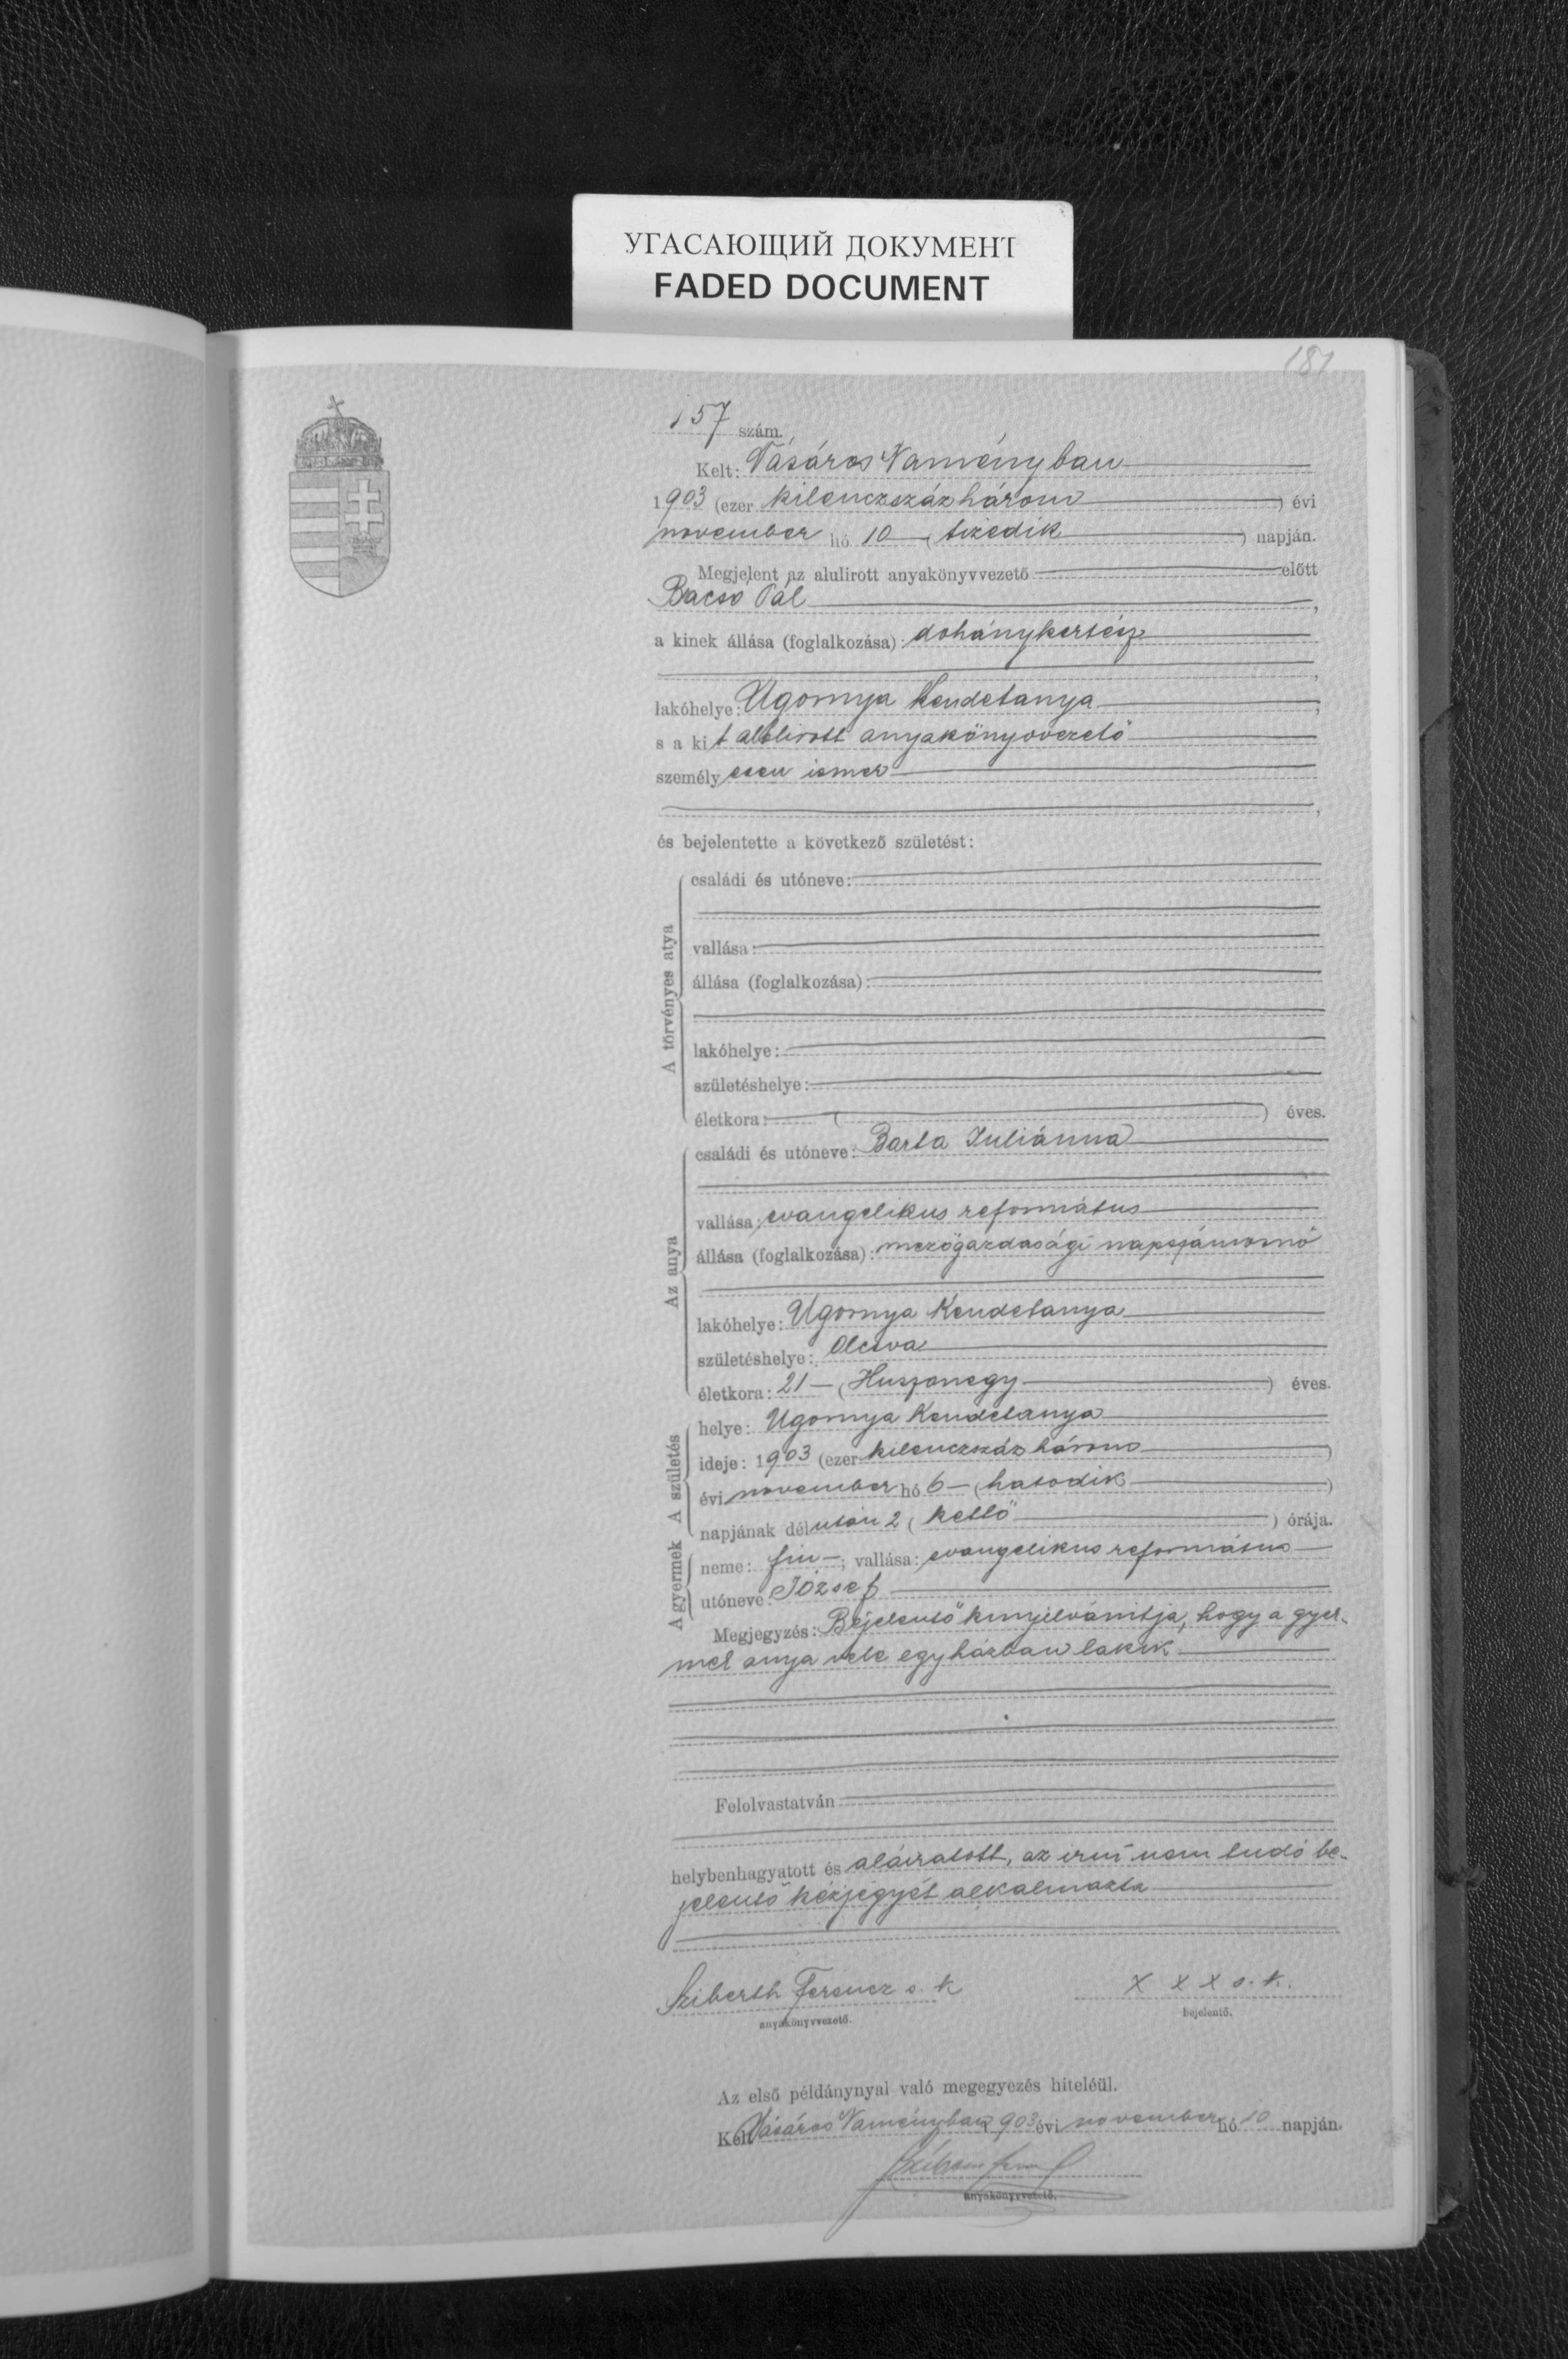 УГАСАЮЩИЙ ДОКУМЕНТ
FADED DOCUMENT
181
157 szám.
Kelt: Vásáros Naményban
1903 (ezer kilenczszázhárom) évi
november hó 10 (tizedik) napján.
Megjelent az alulirott anyakönyvvezető előtt
Bacsó Pál,
a kinek állása (foglalkozása): dohánykertész
,
lakóhelye: Ugornya Kendetanya,
s a kit alolirott anyakönyvvezető
személyesen ismer
,
és bejelentette a következő születést:
A törvényes atya
családi és utóneve:
vallása:
állása (foglalkozása):
lakóhelye:
születéshelye:
életkora: ( ) éves.
Az anya
családi és utóneve: Barta Juliánna
vallása: evangelikus református
állása (foglalkozása): mezőgazdasági napszámosnő
lakóhelye: Ugornya Kendetanya
születéshelye: Olcsva
életkora: 21 (Huszonegy) éves.
A születés
helye: Ugornya Kendetanya
ideje: 1903 (ezer kilenczszáz három)
évi november hó 6 (hatodik)
napjának délután 2 (kettő) órája.
A gyermek
neme: fiu; vallása: evangelikus református
utóneve: József
Megjegyzés: Bejelentő kinyilvánitja, hogy a gyer-
mek anya vele egy házban lakik
Felolvastatván
helybenhagyatott és aláiratott, az irni nem tudó be-
jelentő kézjegyét alkalmazta
Sziberth Ferencz s. k x x x s. k.
anyakönyvvezető. bejelentő.
Az első példánynyal való megegyezés hiteléül.
Kelt Vásáros Naményban 1903 évi november hó 10 napján.
anyakönyvvezető.